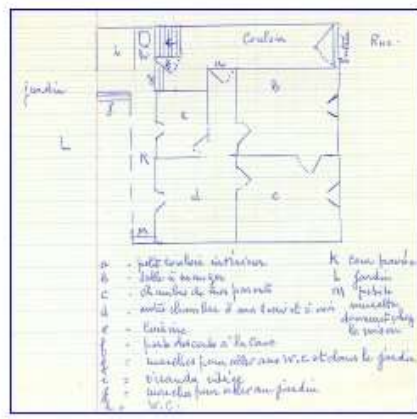 Couloir
Rue
jardin
L
b
e
K
d
c
M
a - petit couloir intérieur
b - salle à manger
c - chambre de mes parents
d - notre chambre à ma sœur et à moi
e - cuisine
f - porte descente à la cave
g = marches pour aller aux W.C et dans le jardin
= véranda vitrée
= marches pour aller au jardin
= W.C.
K cour pavée
L jardin
M petite
murette
donnant chez
le voisin